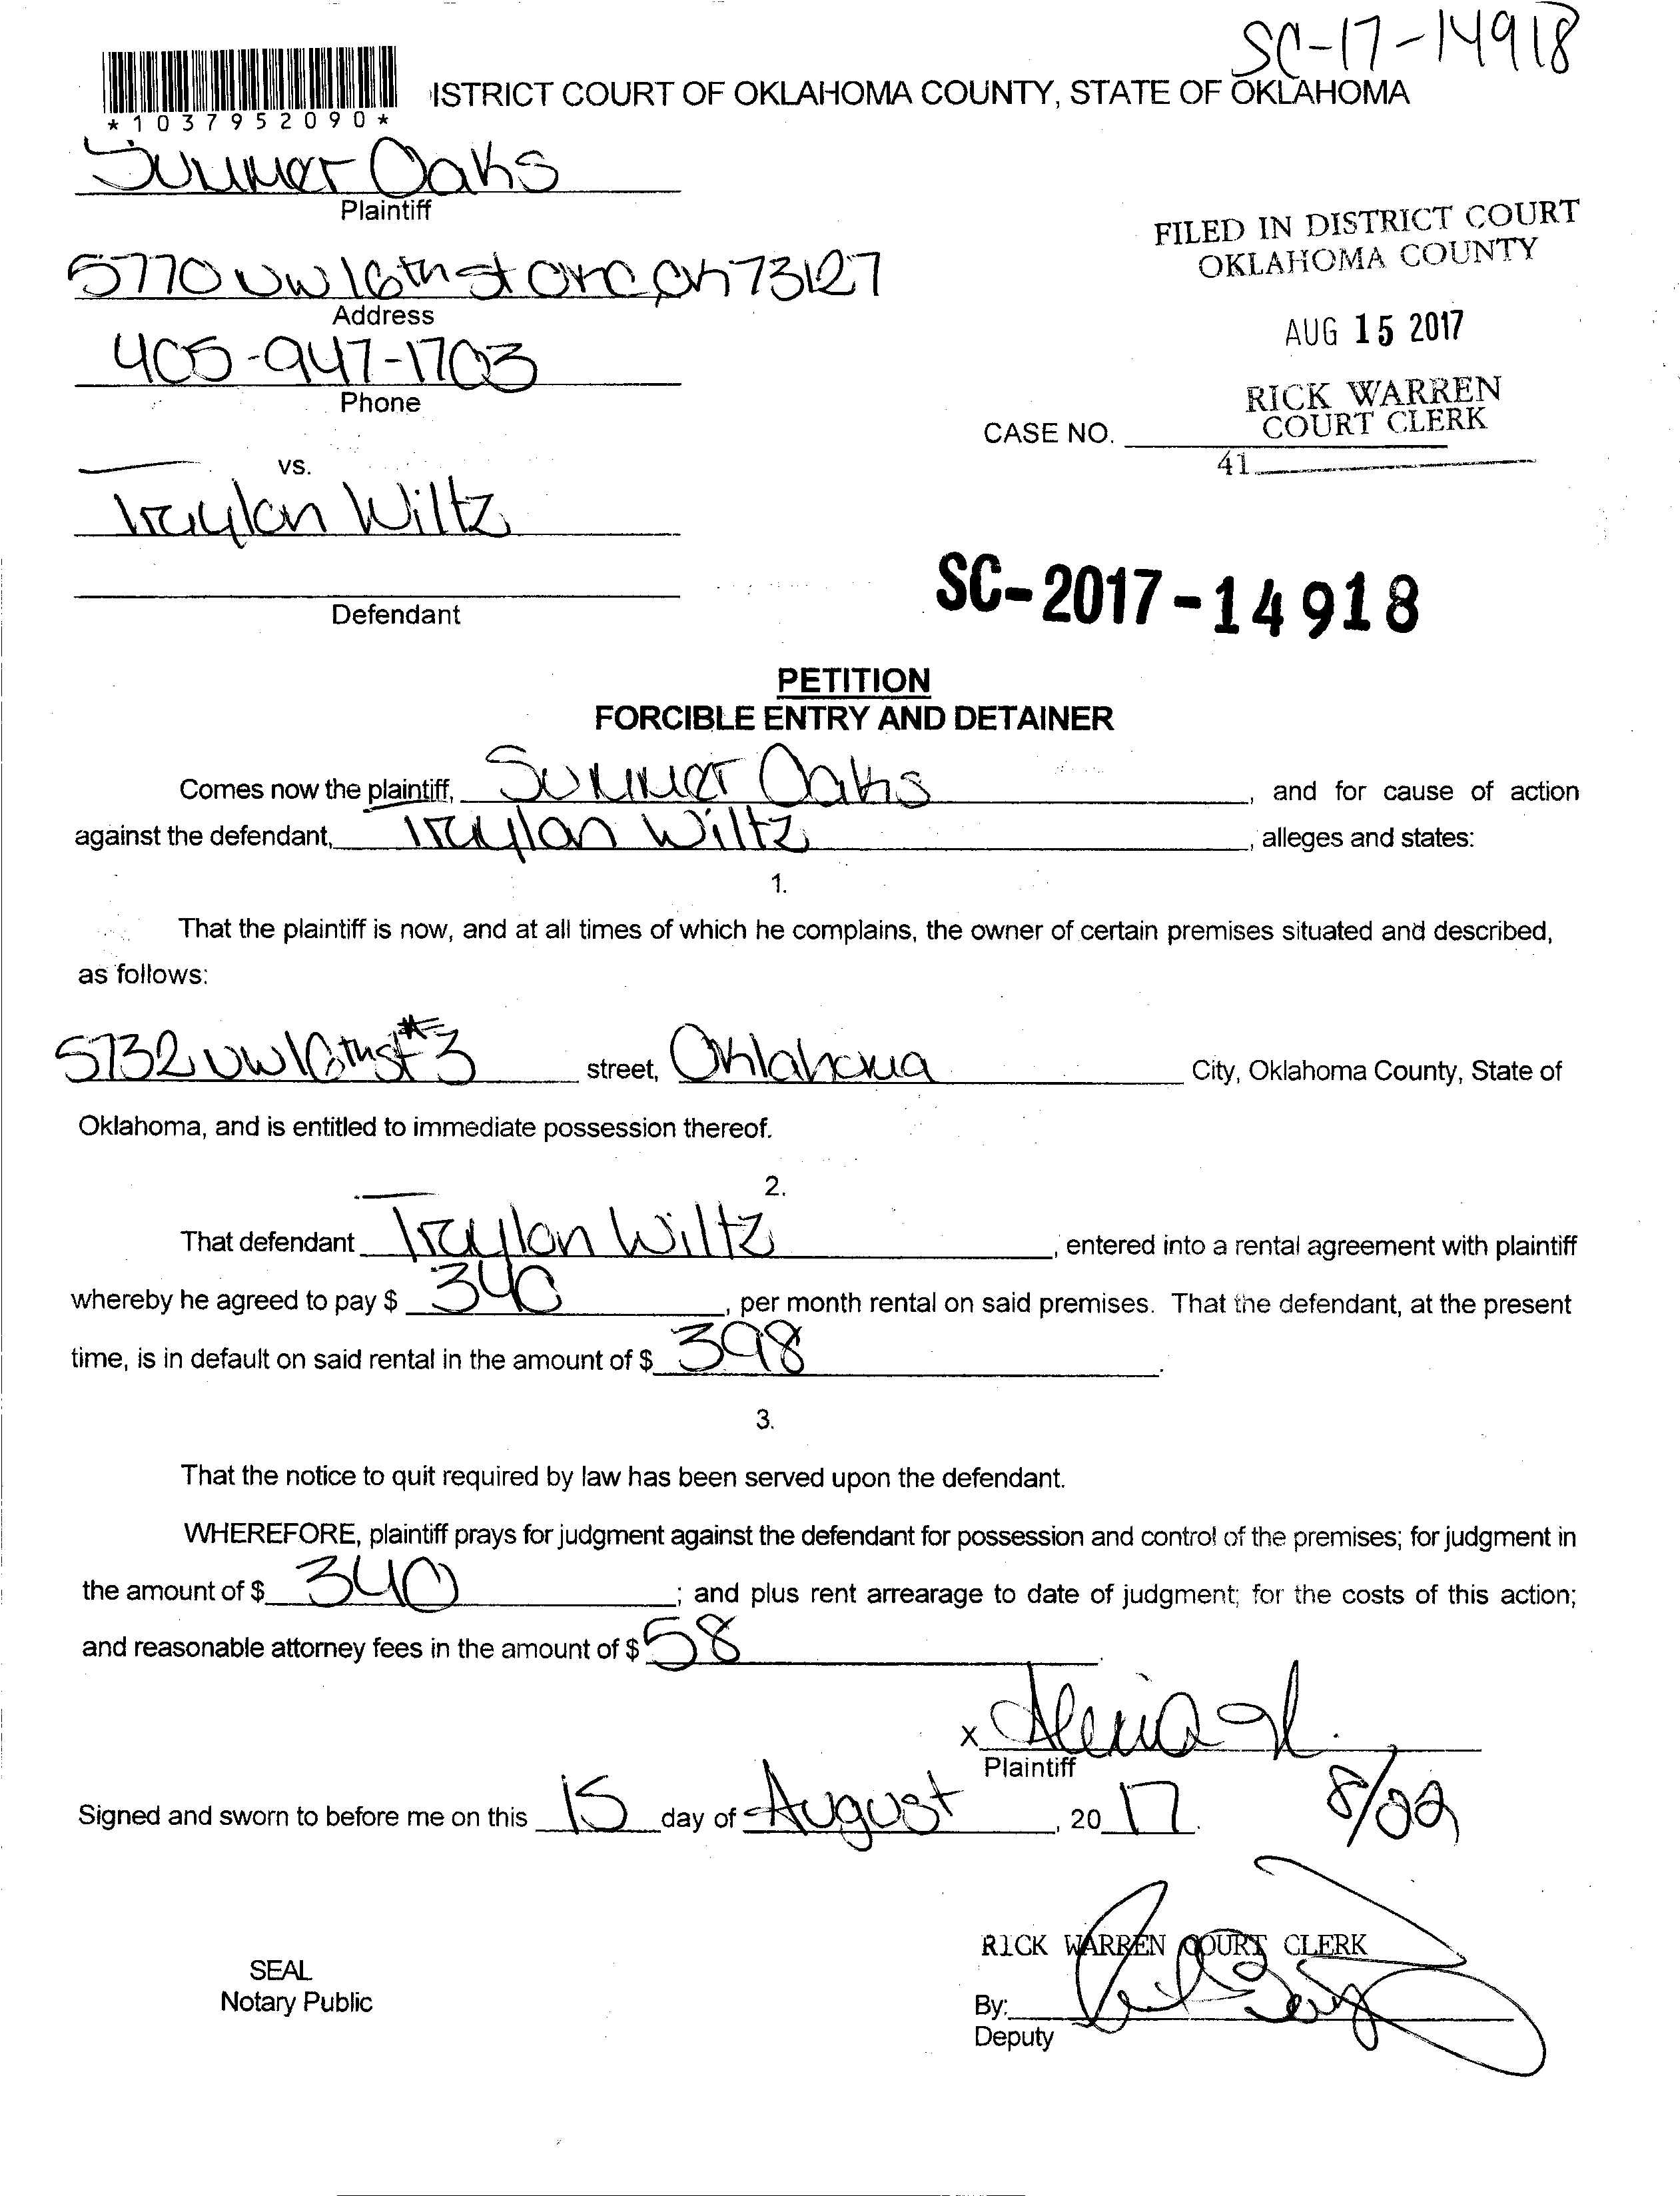 SC-17-14918
*1037952090*
ISTRICT COURT OF OKLAHOMA COUNTY, STATE OF OKLAHOMA
Summer Oaks
Plaintiff
FILED IN DISTRICT COURT
OKLAHOMA COUNTY
5770 NW 16th st OKC, OK 73127
Address
AUG 15 2017
405-947-1703
Phone
RICK WARREN
COURT CLERK
CASE NO.
41
vs.
Traylon Wiltz
SC-2017-14918
Defendant
PETITION
FORCIBLE ENTRY AND DETAINER
Comes now the plaintiff, Summer Oaks, and for cause of action
against the defendant, Traylon Wiltz, alleges and states:
1.
That the plaintiff is now, and at all times of which he complains, the owner of certain premises situated and described,
as follows:
5732 NW 16th st #3 street, Oklahoma City, Oklahoma County, State of
Oklahoma, and is entitled to immediate possession thereof.
2.
That defendant Traylon Wiltz, entered into a rental agreement with plaintiff
whereby he agreed to pay $ 340, per month rental on said premises. That the defendant, at the present
time, is in default on said rental in the amount of $ 398.
3.
That the notice to quit required by law has been served upon the defendant.
WHEREFORE, plaintiff prays for judgment against the defendant for possession and control of the premises; for judgment in
the amount of $ 340; and plus rent arrearage to date of judgment; for the costs of this action;
and reasonable attorney fees in the amount of $ 58.
X
Plaintiff
8/22
Signed and sworn to before me on this 15 day of August, 2017.
RICK WARREN COURT CLERK
SEAL
Notary Public
By:
Deputy